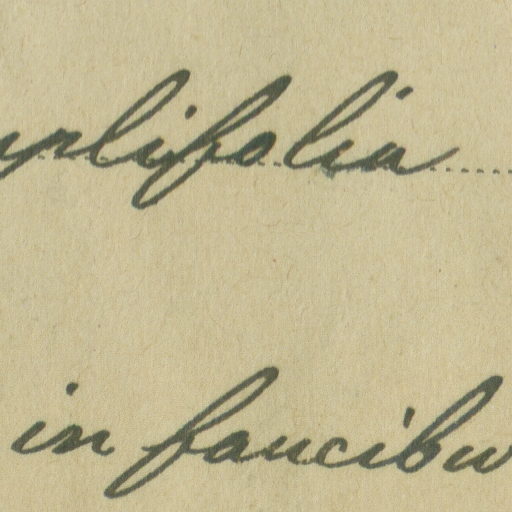 urlifolia
in faucibu